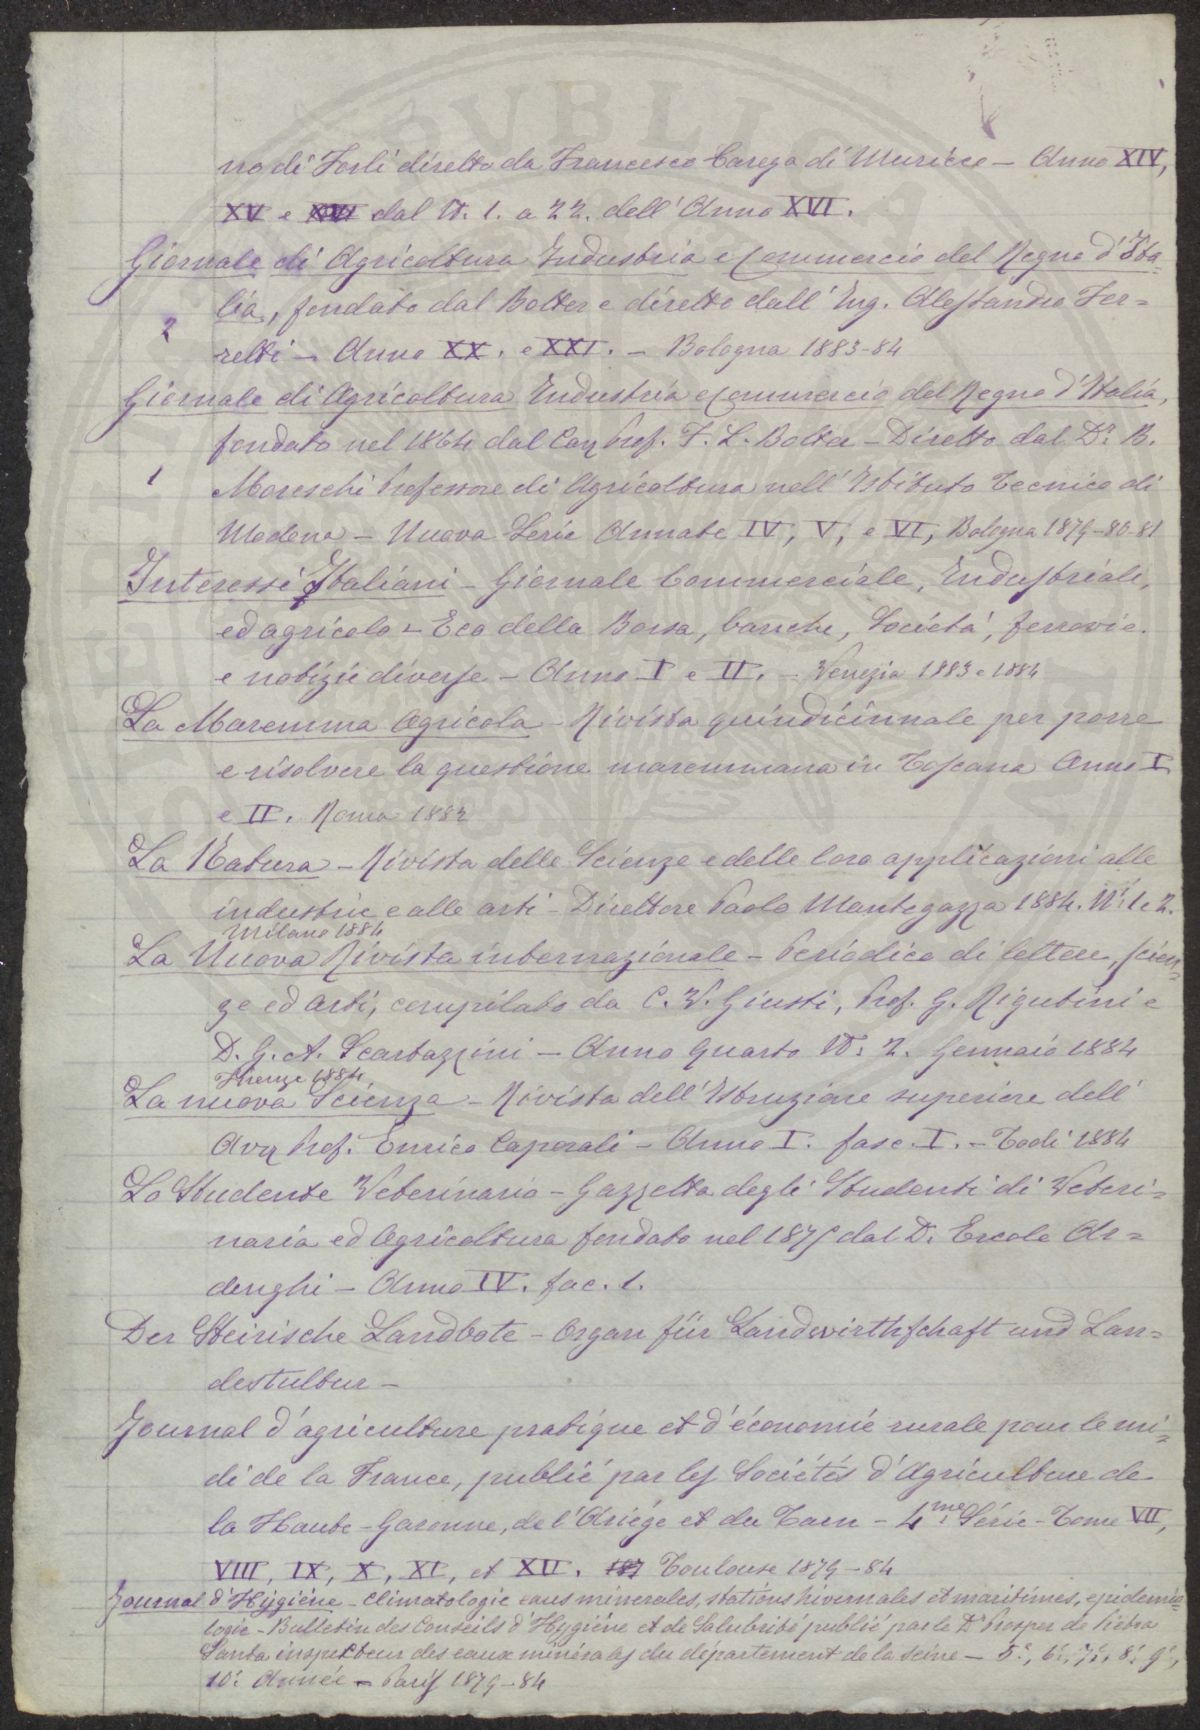 no di Forlì diretto da Francesco Carega di Muricce - Anno XIV,
XV e XVI dal N. 1. a 22. dell'Anno XVI.
Giornale di Agricoltura Industria e Commercio del Regno d'Ita=
lia, fondato dal Botter e diretto dall'Ing. Alessandro Fer=
2
retti - Anno XX. e XXI. - Bologna 1883-84
Giornale di Agricoltura Industria e Commercio del Regno d'Italia,
fondato nel 1864 dal Cav Prof. F. L. Botter - Diretto dal Dr. B.
1
Moreschi Professore di Agricoltura nell'Istituto Tecnico di
Modena - Nuova Serie Annate IV, V, e VI, Bologna 1879-80-81
Interessi Italiani - Giornale Commerciale, Industriale,
ed agricolo - Eco della Borsa, banche, Società, ferrovie.
e notizie diverse - Anno I e II. - Venezia 1883 e 1884
La Maremma Agricola - Rivista quindicinnale per porre
e risolvere la questione maremmana in Toscana Anno I
e II. Roma 1882
La Natura - Rivista delle Scienze e delle loro applicazioni alle
industrie e alle arti - Direttore Paolo Mantegazza 1884. Ni. 1 e 2.
Milano 1884
La Nuova Rivista internazionale - Periodico di lettere, scien=
ze ed arti, compilato da C. V. Giusti, Prof. G. Rigutini e
D. G. A. Scartazzini - Anno quarto N. 2. Gennaio 1884
Firenze 1884
La nuova Scienza - Rivista dell'Istruzione superiore dell'
Avv Prof. Enrico Caporali - Anno I. fasc. I. - Todi 1884
Lo Studente Veterinario - Gazzetta degli Studenti di Veteri=
naria ed Agricoltura fondato nel 187 dal D. Ercole Ar=
denghi - Anno IV. fac. 1.
Der Steirische Landbote - Organ für Landwirthschaft und Lan=
destultur -
Journal d'agriculture pratique et d'économie rurale pour le mi=
di de la France, publié par les Sociétés d'Agriculture de
la Haute-Garonne, de l'Ariége et du Tarn - 4me. Série - Tome VII,
VIII, IX, X, XI, et XII. 187 Toulouse 1879-84
Journal d'Hygiène - Climatologie eaus minerales, stations hivernales et maritimes, epidemio=
logie - Bulletin des Conseils d'Hygiène et de Salubrité publié par le Dr Prosper de Pietra
Santa inspecteur des eaux minérales du département de la Seine - 5e., 6e., 7e., 8e. 9e.,
10e. Année - Paris 1879-84